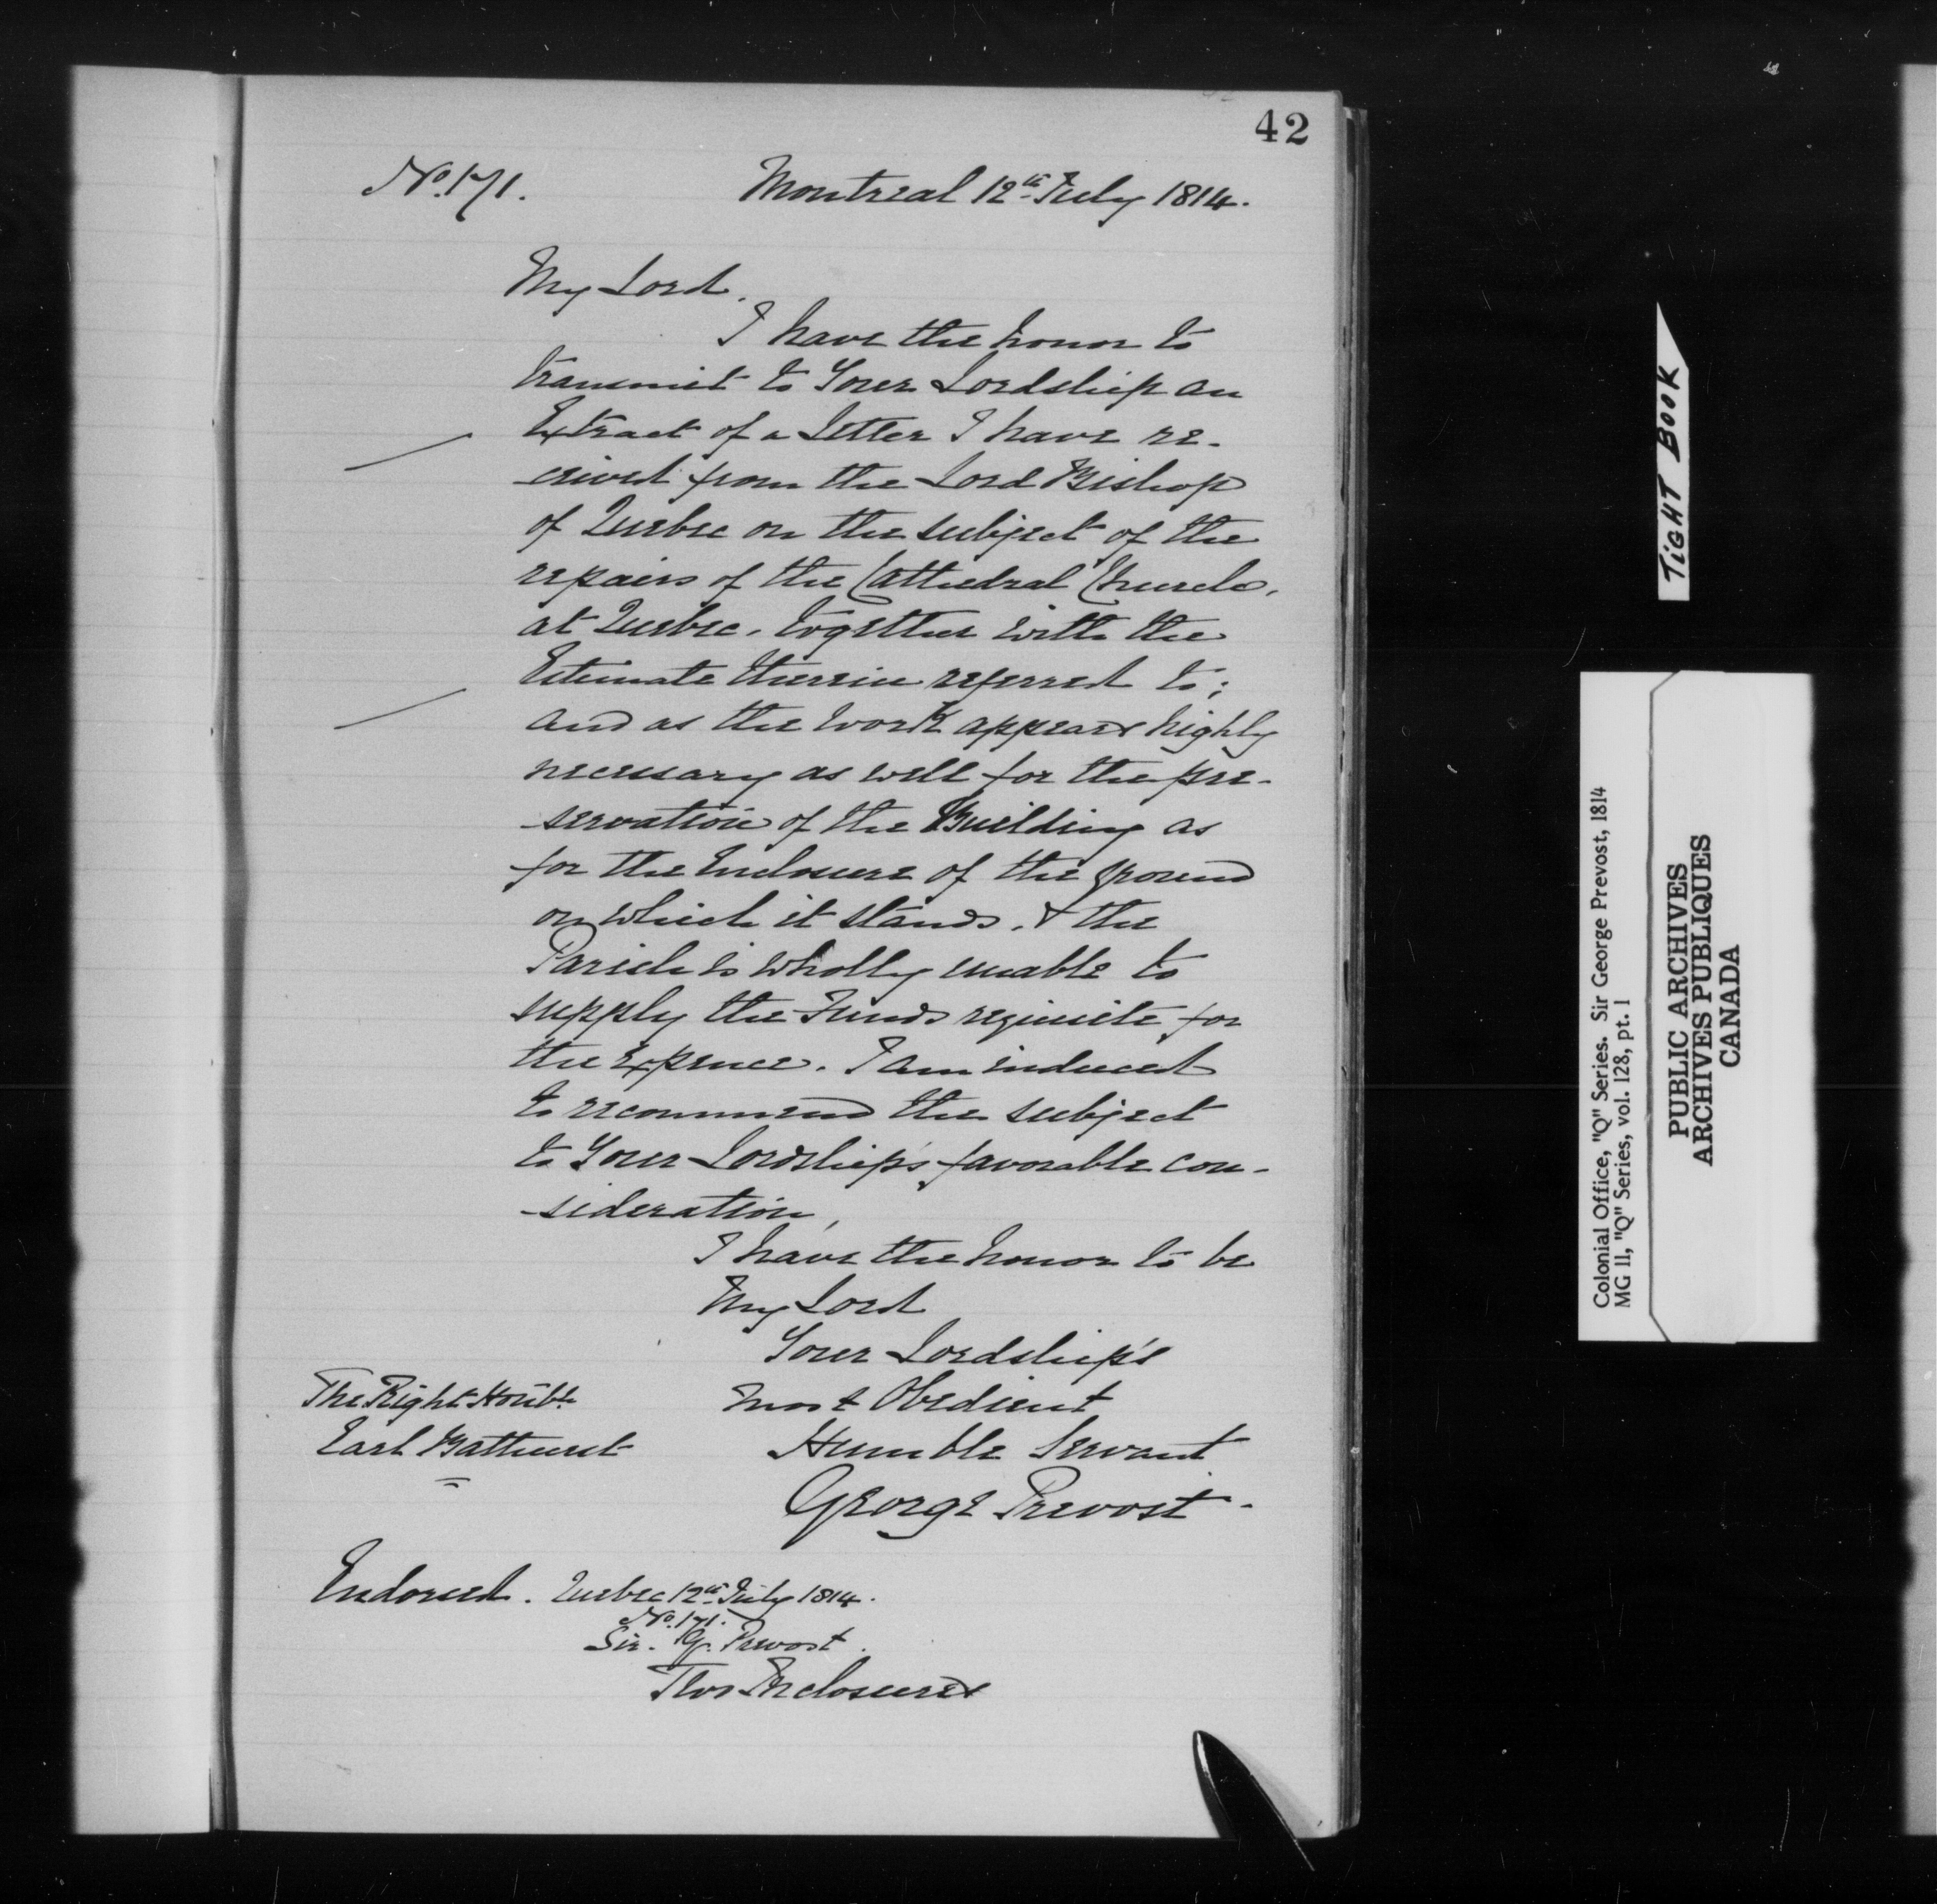 42
No. 171.
Montreal 12th July 1814.
My Lord.
I have the honor to
transmit to Your Lordship an
Extract of a letter I have re-
ceived from the Lord Bishop
of Quebec on the subject of the
repairs of the Cathedral Church,
at Quebec, together with the
Estimate therein referred to;
and as the work appears highly
necessary as well for the pre-
servation of the Building as
for the Enclosure of the ground
on which it stands, & the
Parish is wholly unable to
supply the Funds requisite for
the expence. I am induced
to recommend the subject
to Your Lordship's favorable con-
sideration,
I have the honor to be
My Lord
Your Lordship's
most Obedient
Humble Servant
George Prevost.
The Right Honble
Earl Bathurst
Endorsed. Quebec 12th July 1814.
No. 171.
Sir. G. Prevost.
Two Enclosures
TIGHT BOOK
Colonial Office, "Q" Series. Sir George Prevost, 1814
MG 11, "Q" Series, vol. 128, pt. 1
PUBLIC ARCHIVES
ARCHIVES PUBLIQUES
CANADA